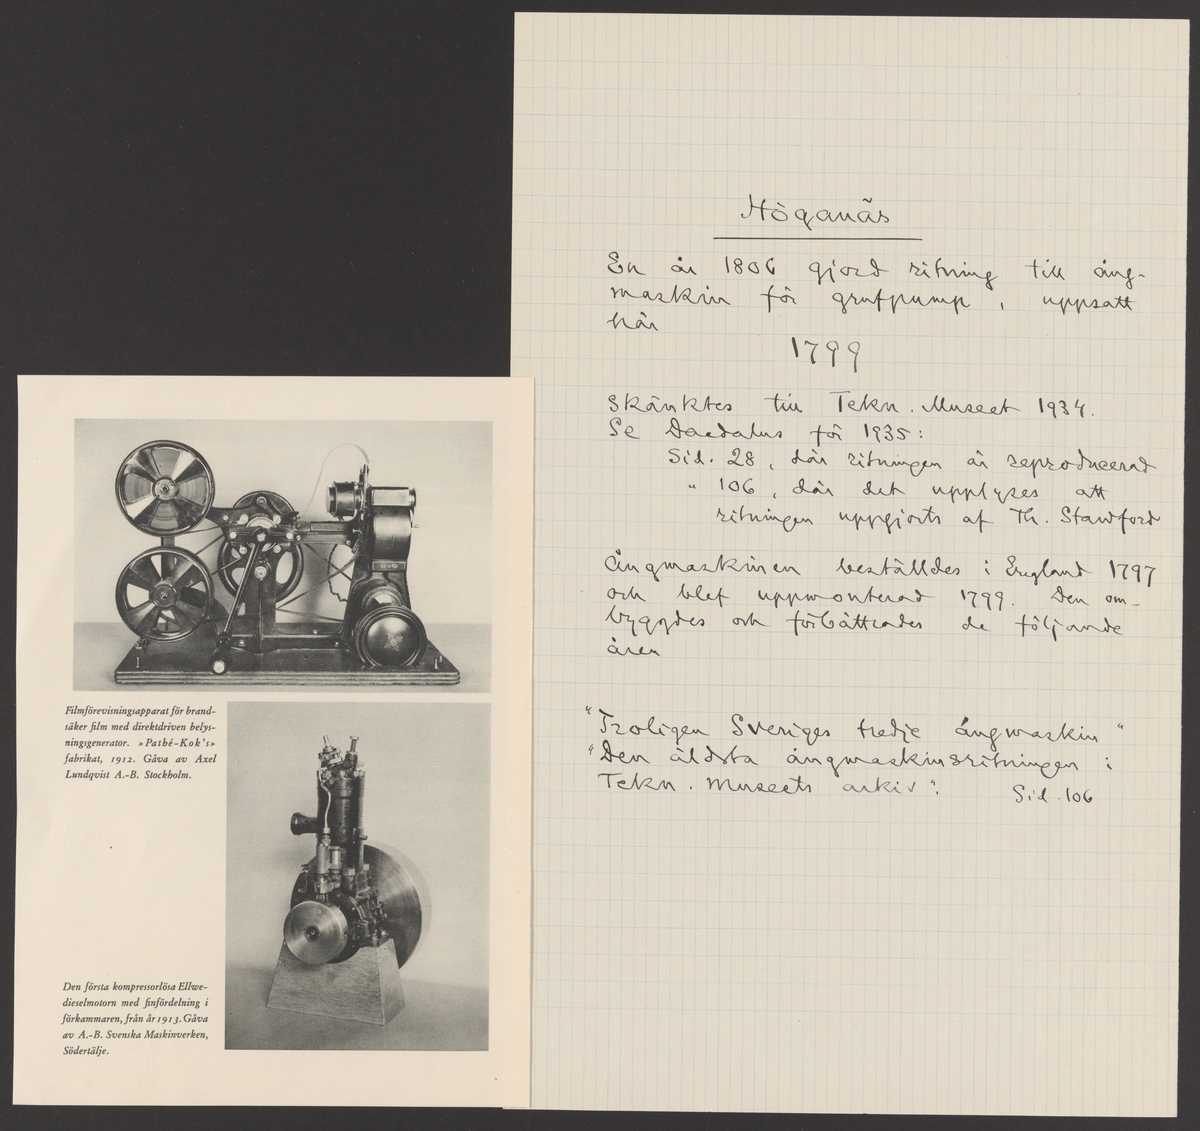 Höganäs
En år 1806 gjord ritning till ång-
maskin för grufpump, uppsatt
här
1799
Skänktes till Tekn. Museet 1934.
Se Daedalus för 1935:
Sid. 28, där ritningen är reproducerad
" 106, där det upplyses att
ritningen uppgjorts af Th. Stawford
Ångmaskinen beställdes i England 1797
och blef uppmonterad 1799. Den om-
byggdes och förbättrades de följande
åren
"Troligen Sveriges tredje ångmaskin"
"Den äldsta ångmaskinsritningen i
Tekn. Museets arkiv". Sid. 106
Filmförevisningsapparat för brand-
säker film med direktdriven belys-
ningsgenerator. »Pathé-Kok's»
fabrikat, 1912. Gåva av Axel
Lundqvist A.-B. Stockholm.
Den första kompressorlösa Ellwe-
dieselmotorn med finfördelning i
förkammaren, från år 1913. Gåva
av A.-B. Svenska Maskinverken,
Södertälje.